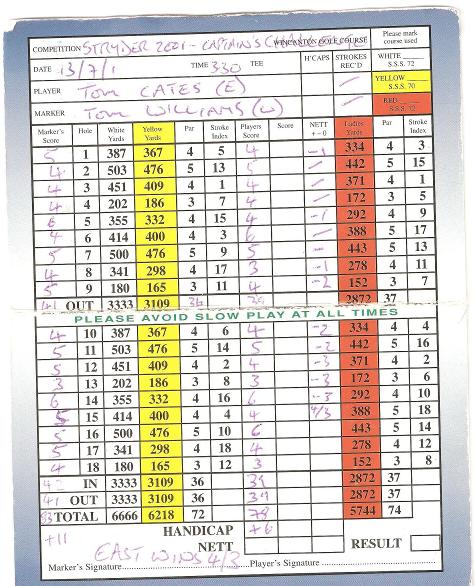 COMPETITION STRYDER 2001 - CAPTAIN'S WINCANTON GOLF COURSE Please mark course used
DATE 13/7/1 TIME 330 TEE H'CAPS STROKES REC'D WHITE S.S.S. 72
PLAYER Tom CATES (E) YELLOW S.S.S. 70
MARKER Tom WILLIAMS (W) RED S.S.S. 72
Marker's Score Hole White Yards Yellow Yards Par Stroke Index Players Score Score NETT + - 0 Ladies Yards Par Stroke Index
5 1 387 367 4 5 4 -1 334 4 3
4 2 503 476 5 13 5 442 5 15
4 3 451 409 4 1 4 371 4 1
4 4 202 186 3 7 4 172 3 5
6 5 355 332 4 15 4 -1 292 4 9
4 6 414 400 4 3 6 388 5 17
5 7 500 476 5 9 5 443 5 13
4 8 341 298 4 17 3 -1 278 4 11
5 9 180 165 3 11 4 -2 152 3 7
41 OUT 3333 3109 36 39 2872 37
PLEASE AVOID SLOW PLAY AT ALL TIMES
4 10 387 367 4 6 4 -2 334 4 4
5 11 503 476 5 14 5 -2 442 5 16
5 12 451 409 4 2 4 -3 371 4 2
3 13 202 186 3 8 3 -3 172 3 6
6 14 355 332 4 16 6 -3 292 4 10
5 15 414 400 4 4 4 4/3 388 5 18
5 16 500 476 5 10 6 443 5 14
5 17 341 298 4 18 4 278 4 12
4 18 180 165 3 12 3 152 3 8
42 IN 3333 3109 36 39 2872 37
41 OUT 3333 3109 36 39 2872 37
83 TOTAL 6666 6218 72 78 5744 74
+11 HANDICAP +6
NETT RESULT
EAST WINS 4/3
Marker's Signature Player's Signature